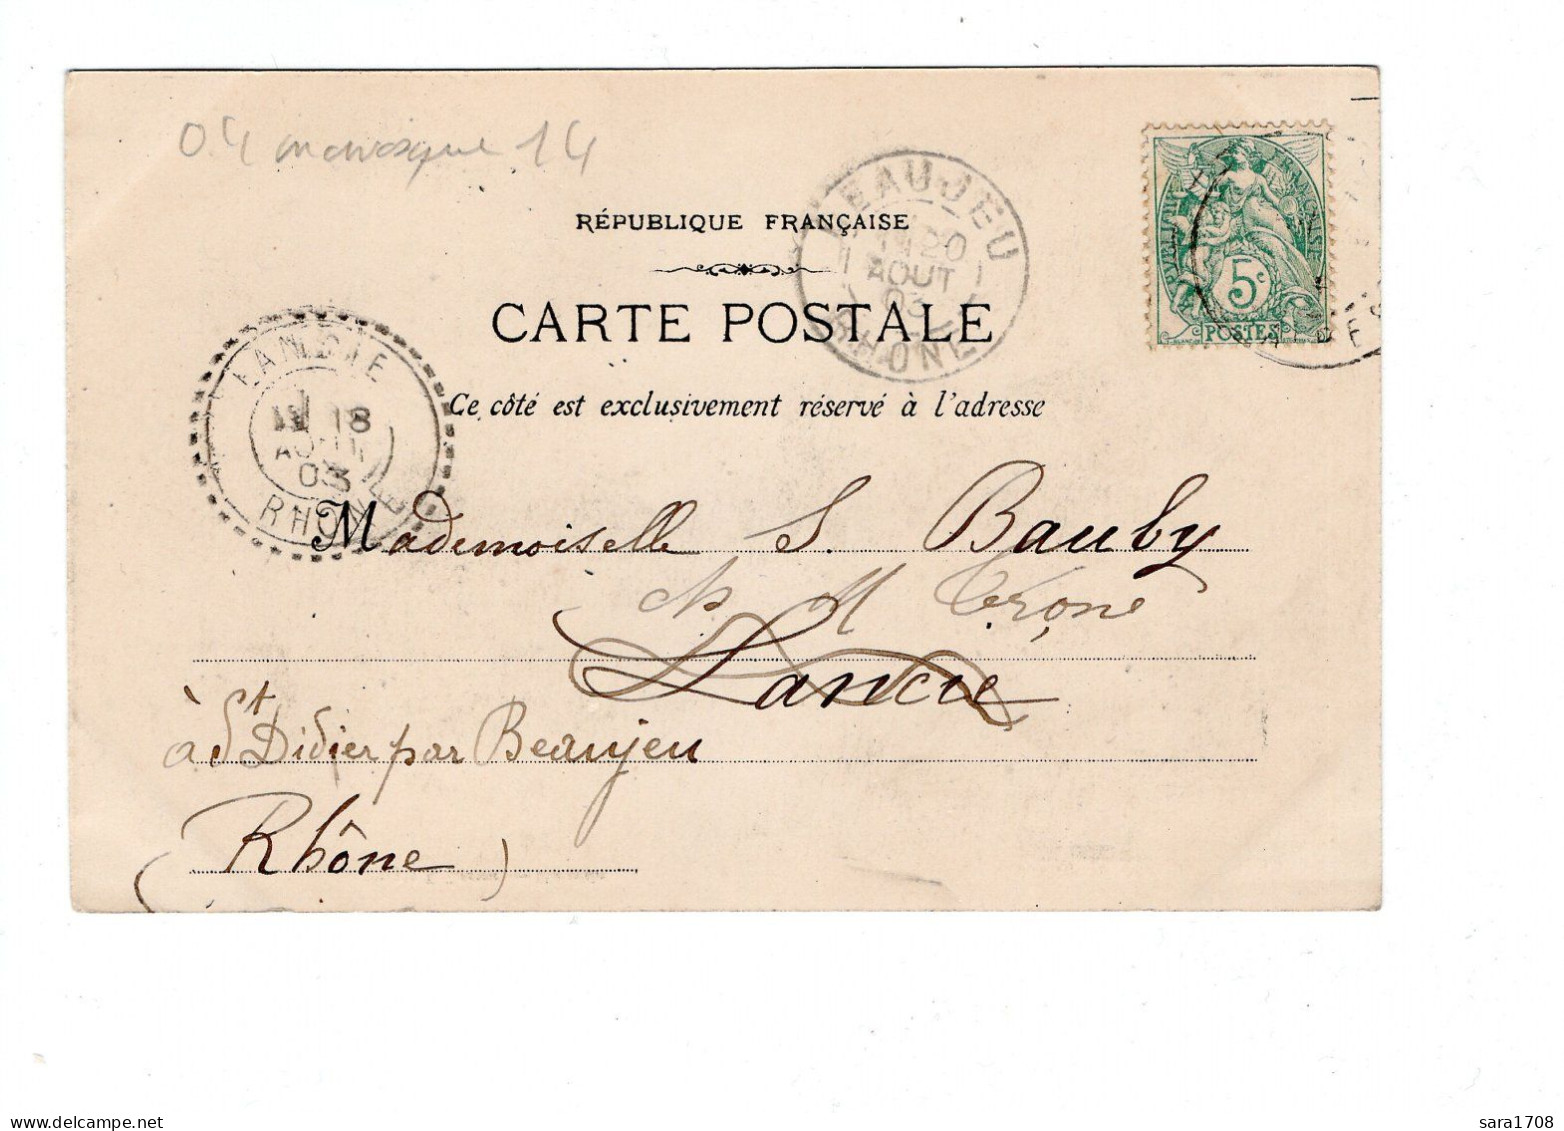 04 manosque 14
RÉPUBLIQUE FRANÇAISE
CARTE POSTALE
Ce côté est exclusivement réservé à l'adresse
BEAUJEU
20
AOUT
03
RHONE
RÉPUBLIQUE FRANÇAISE
5c
POSTES
LANCIE
18
AOUT
03
RHONE
Mademoiselle S. Bauby
ch M Trone
Lancié
à St Didier par Beaujeu
(Rhône)
delcampe.net
sara1708